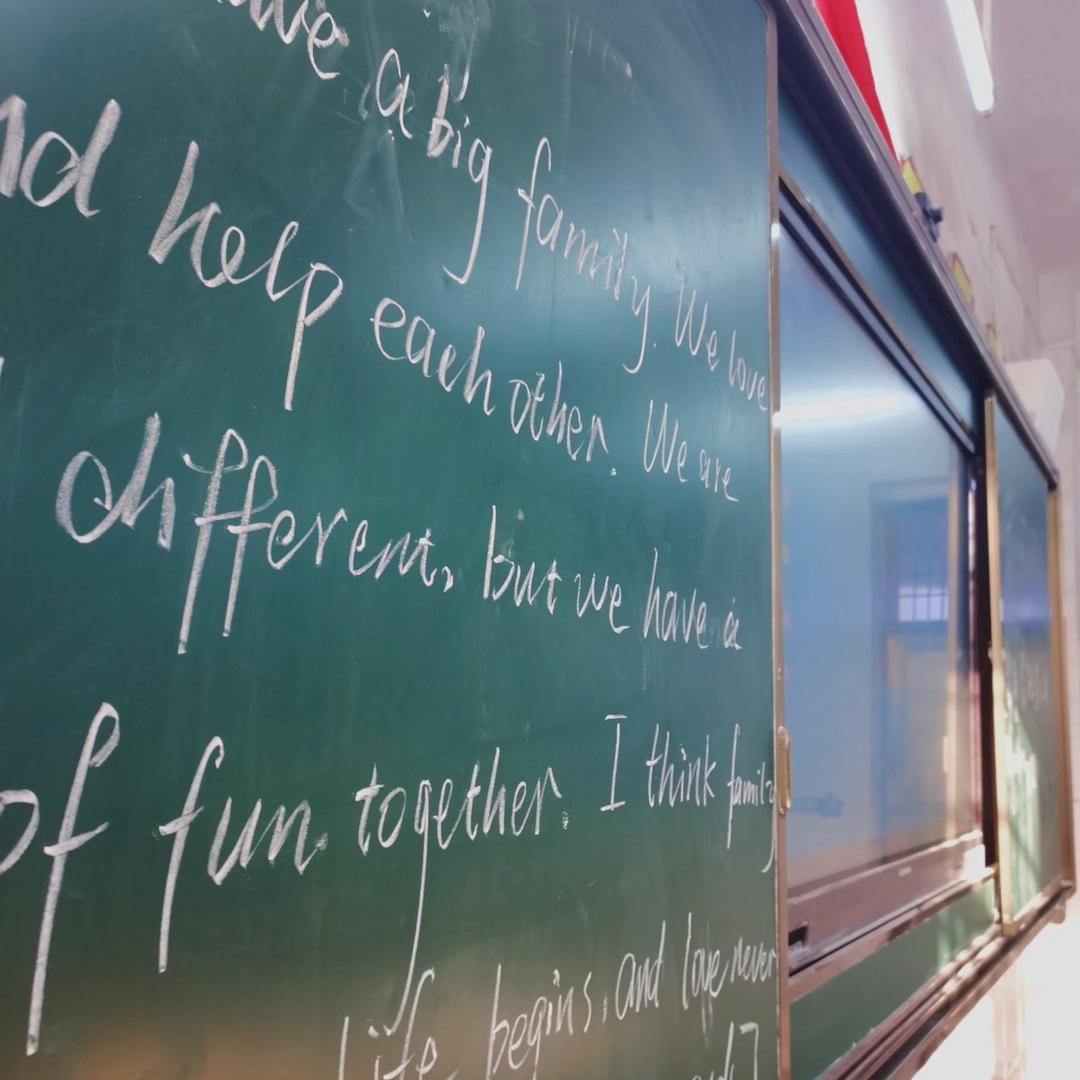 a big family. We love
help each other. We are
different, but we have a
of fun together. I think family
life begins, and love never